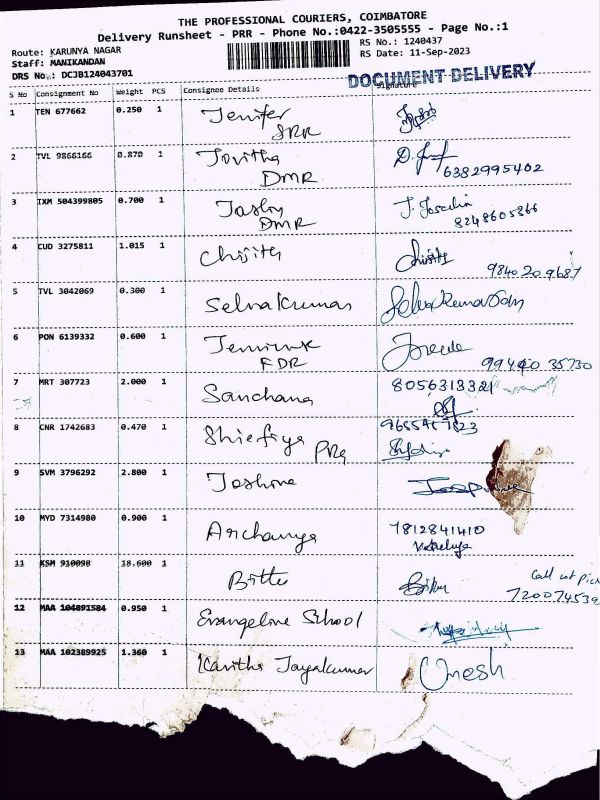 THE PROFESSIONAL COURIERS, COIMBATORE
Delivery Runsheet - PRR - Phone No.:0422-3505555 - Page No.:1
Route: KARUNYA NAGAR
RS No.: 1240437
Staff: MANIKANDAN
RS Date: 11-Sep-2023
DRS No.: DCJB124043701
DOCUMENT DELIVERY
S No Consignment No Weight PCS Consignee Details Signature
1 TEN 677662 0.250 1 Jenifer
SRR
2 TVL 9866166 0.870 1 Jovitha
DMR 6382995402
3 IXM 504399805 0.700 1 J. Joscelin
DMR 8248605866
4 CUD 3275811 1.015 1 Chijith
9840209687
5 TVL 3042069 0.300 1 Selvakumar
6 PON 6139332 0.600 1
FDR 99440 35730
7 MRT 307723 2.000 1 Sanchana 8056313321
8 CNR 1742683 0.470 1
9 SVM 3796292 2.800 1
10 MYD 7314980 0.900 1 Archanya 7812841410
11 KSM 910098 18.600 1
Call
12 MAA 104891584 0.950 1 Evangeline School
13 MAA 102389925 1.360 1 Kavitha Jayakumar Umesh